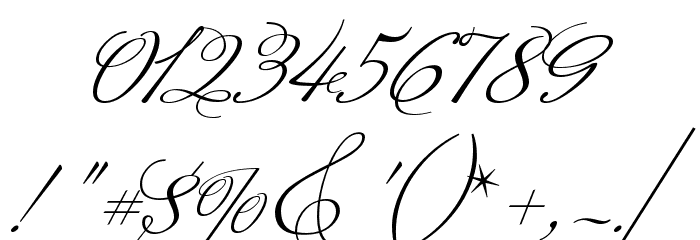 0123456789
! " # $ % & ' ( ) * + , ~ . /